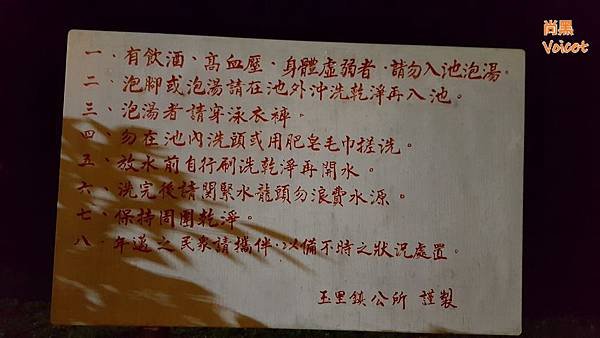 尚黑
Voicet
一、有飲酒、高血壓、身體虛弱者，請勿入池泡湯。
二、泡腳或泡湯請在池外沖洗乾淨再入池。
三、泡湯者請穿泳衣褲。
四、勿在池內洗頭或用肥皂毛巾搓洗。
五、放水前自行刷洗乾淨再開水。
六、洗完後請関緊水龍頭勿浪費水源。
七、保持周圍乾淨。
八、年邁之民眾請攜伴，以備不時之狀況處置。
玉里鎮公所 謹製